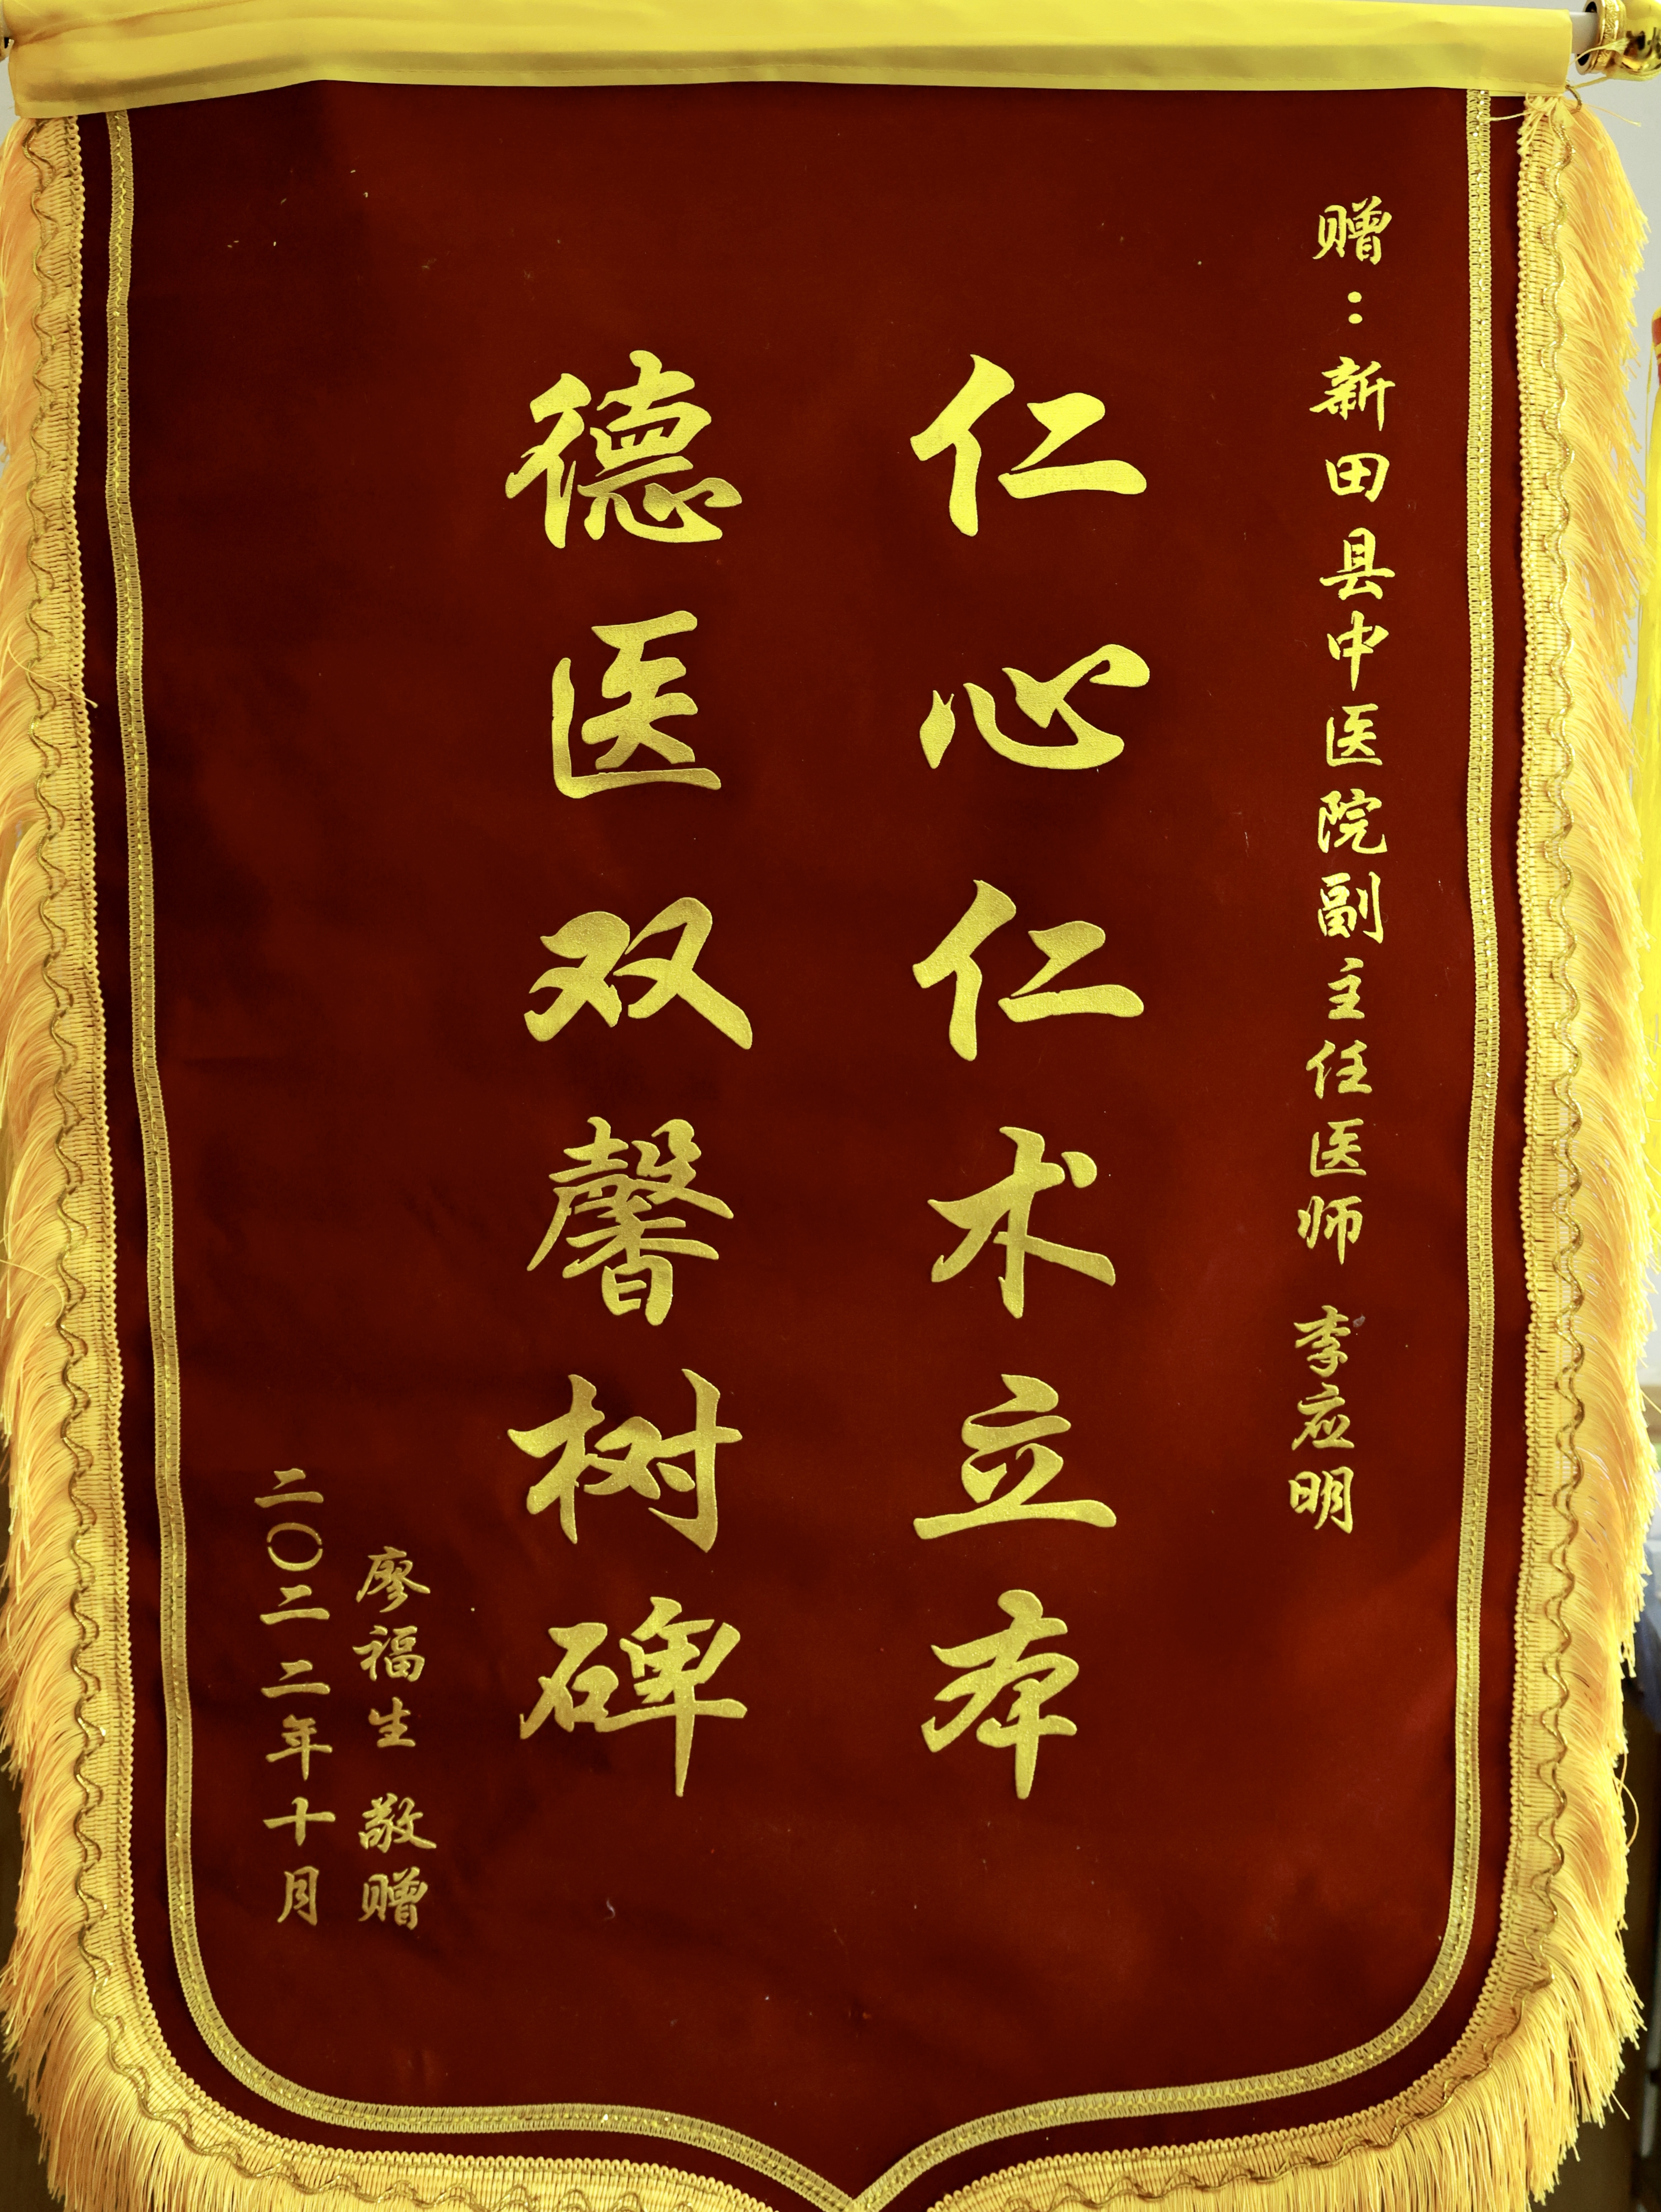 赠：新田县中医院副主任医师 李应明
仁心仁术立本
德医双馨树碑
廖福生 敬赠
二〇二二年十月